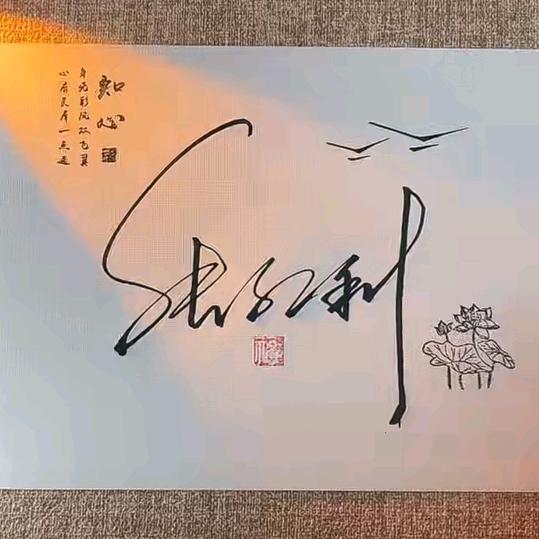 知心
身无彩凤双飞翼
心有灵犀一点通
张红利